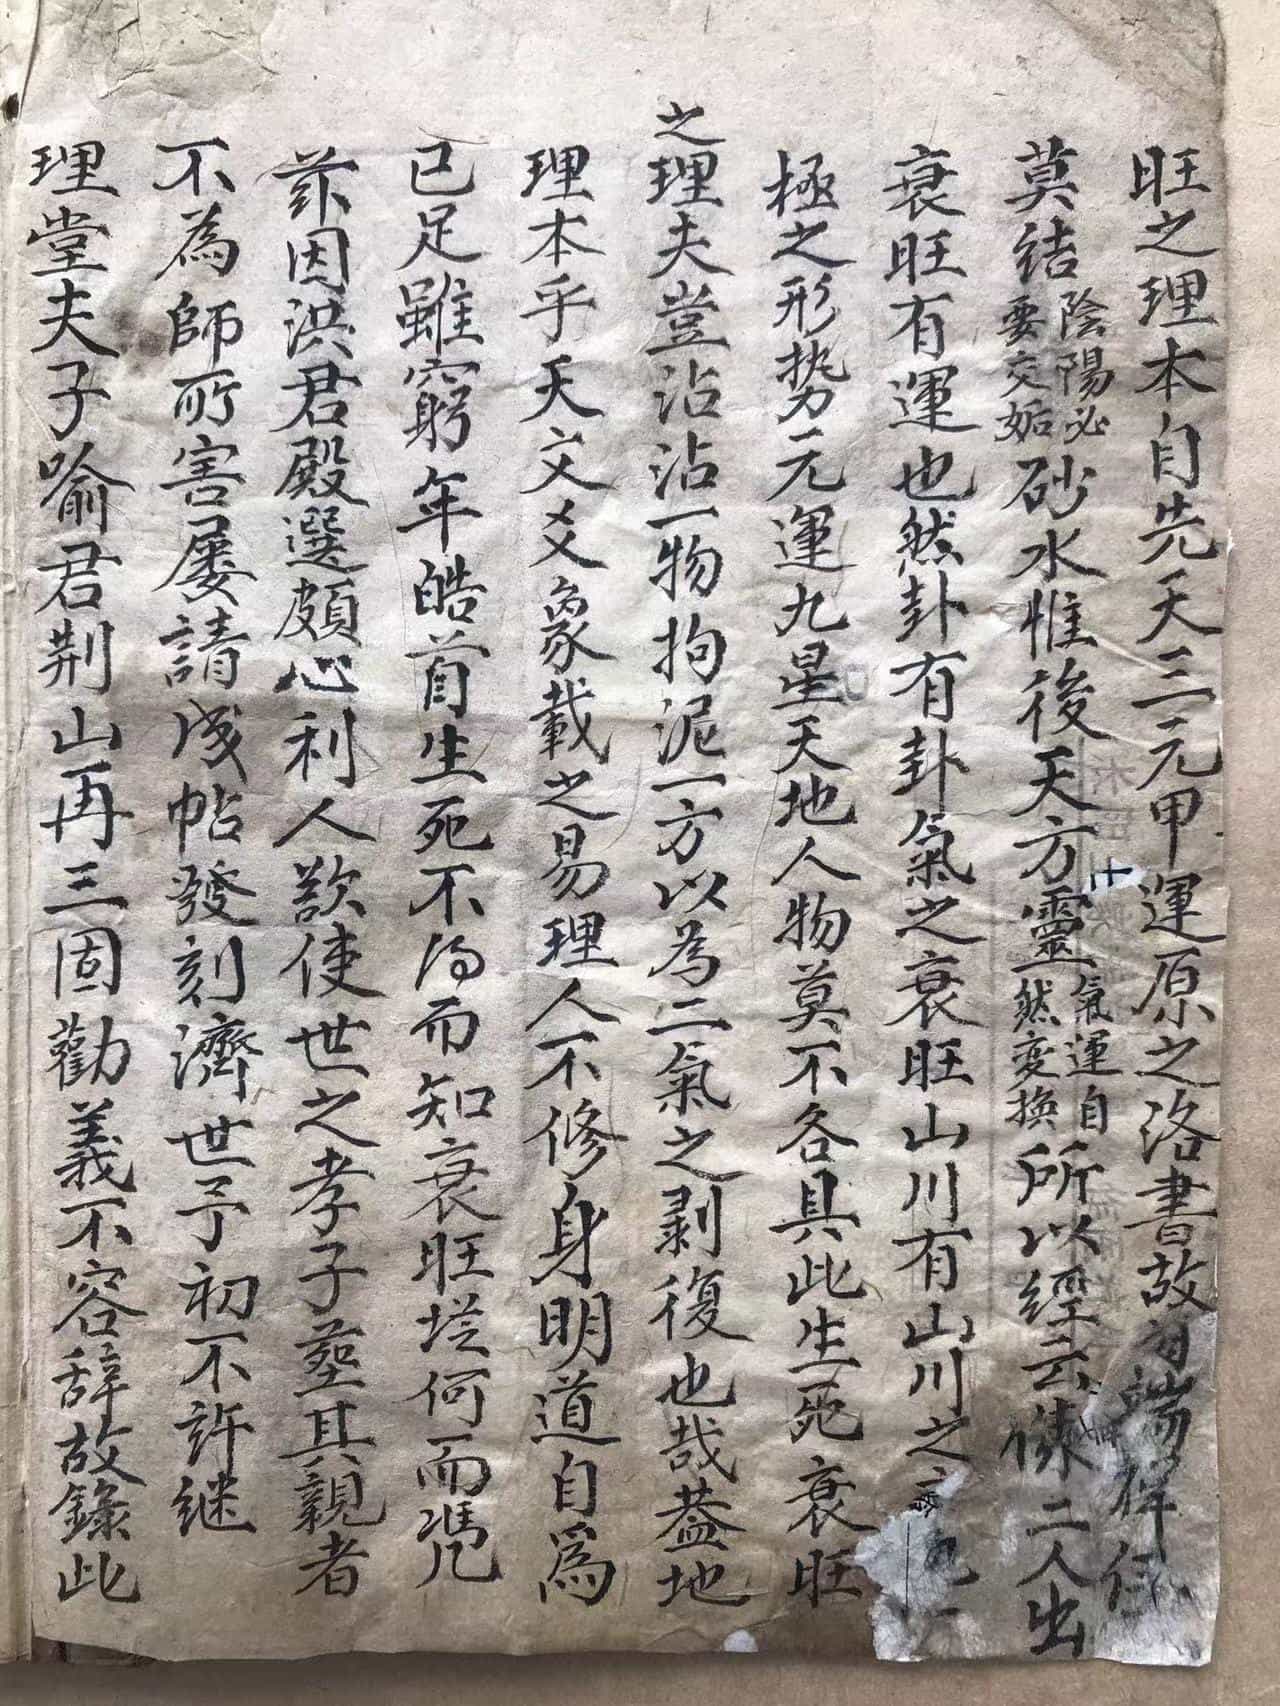 旺之理本自先天三元甲運原之洛書故
莫結陰陽必要交姤砂水惟後天方靈氣運自然变換所以經云二人出
衰旺有運也然卦有卦氣之衰旺山川有山川之
極之形势元運九星天地人物莫不各具此生死衰旺
之理夫豈沾沾一物拘泥一方以為二氣之剥復也哉蓋地
理本乎天文爻象載之易理人不修身明道自爲
已足雖窮年皓首生死不得而知衰旺從何而凴
兹因洪君殿選頗心利人欲使世之孝子塟其親者
不為師所害屢請成帖發刻濟世予初不許继
理堂夫子喻君荆山再三固勸義不容辞故錄此